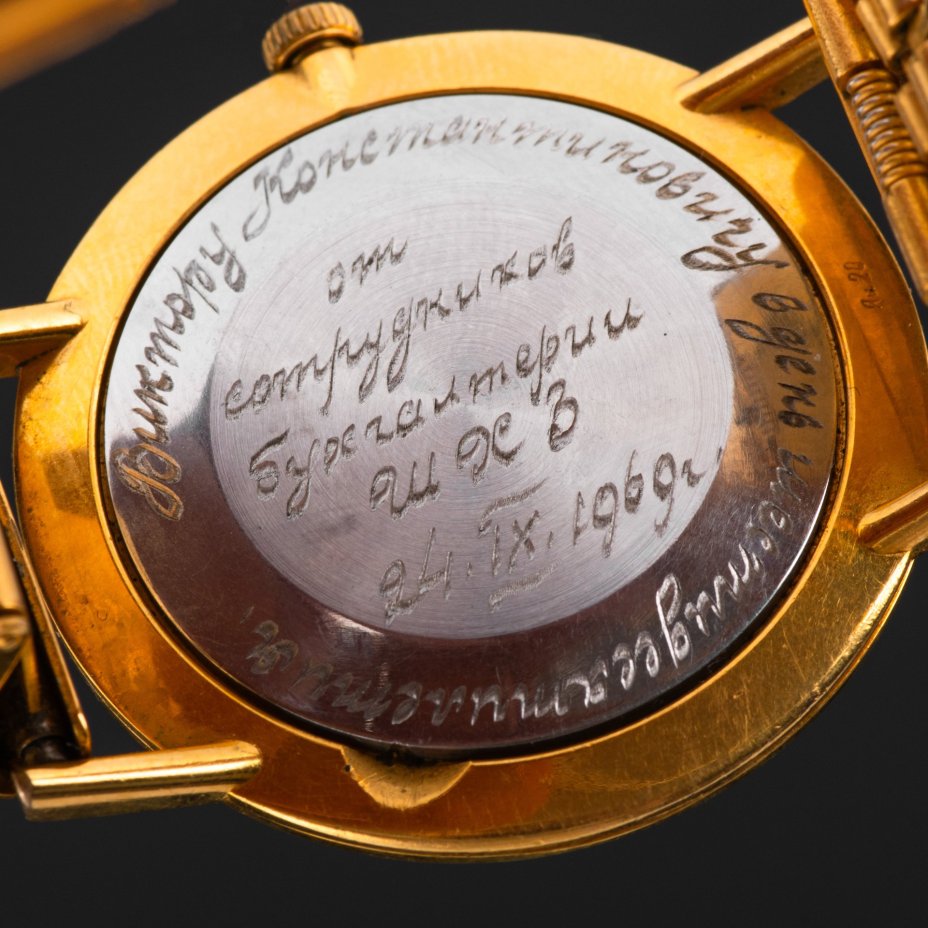 Виктору Константиновичу в день шестидесятилетия.
от
сотрудников
бухгалтерии
24.IX.1969г.
Au20